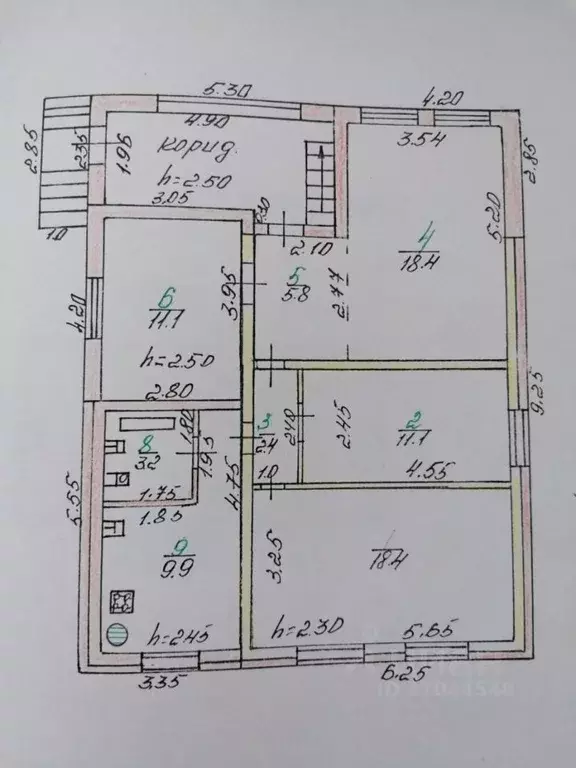 5.30
4.20
4.90
3.54
корид.
1.95
2.35
2.85
2.85
h=2.50
3.05
1.0
2.10
5.20
4
18.4
5
5.8
2.77
6
11.1
3.95
4.20
h=2.50
2.80
9.25
1.80
3
2.4
2.40
2.45
2
11.1
8
3.2
1.95
4.75
1.0
4.55
1.75
1.85
5.55
9
9.9
3.25
18.4
h=2.45
h=2.30
5.65
3.35
6.25